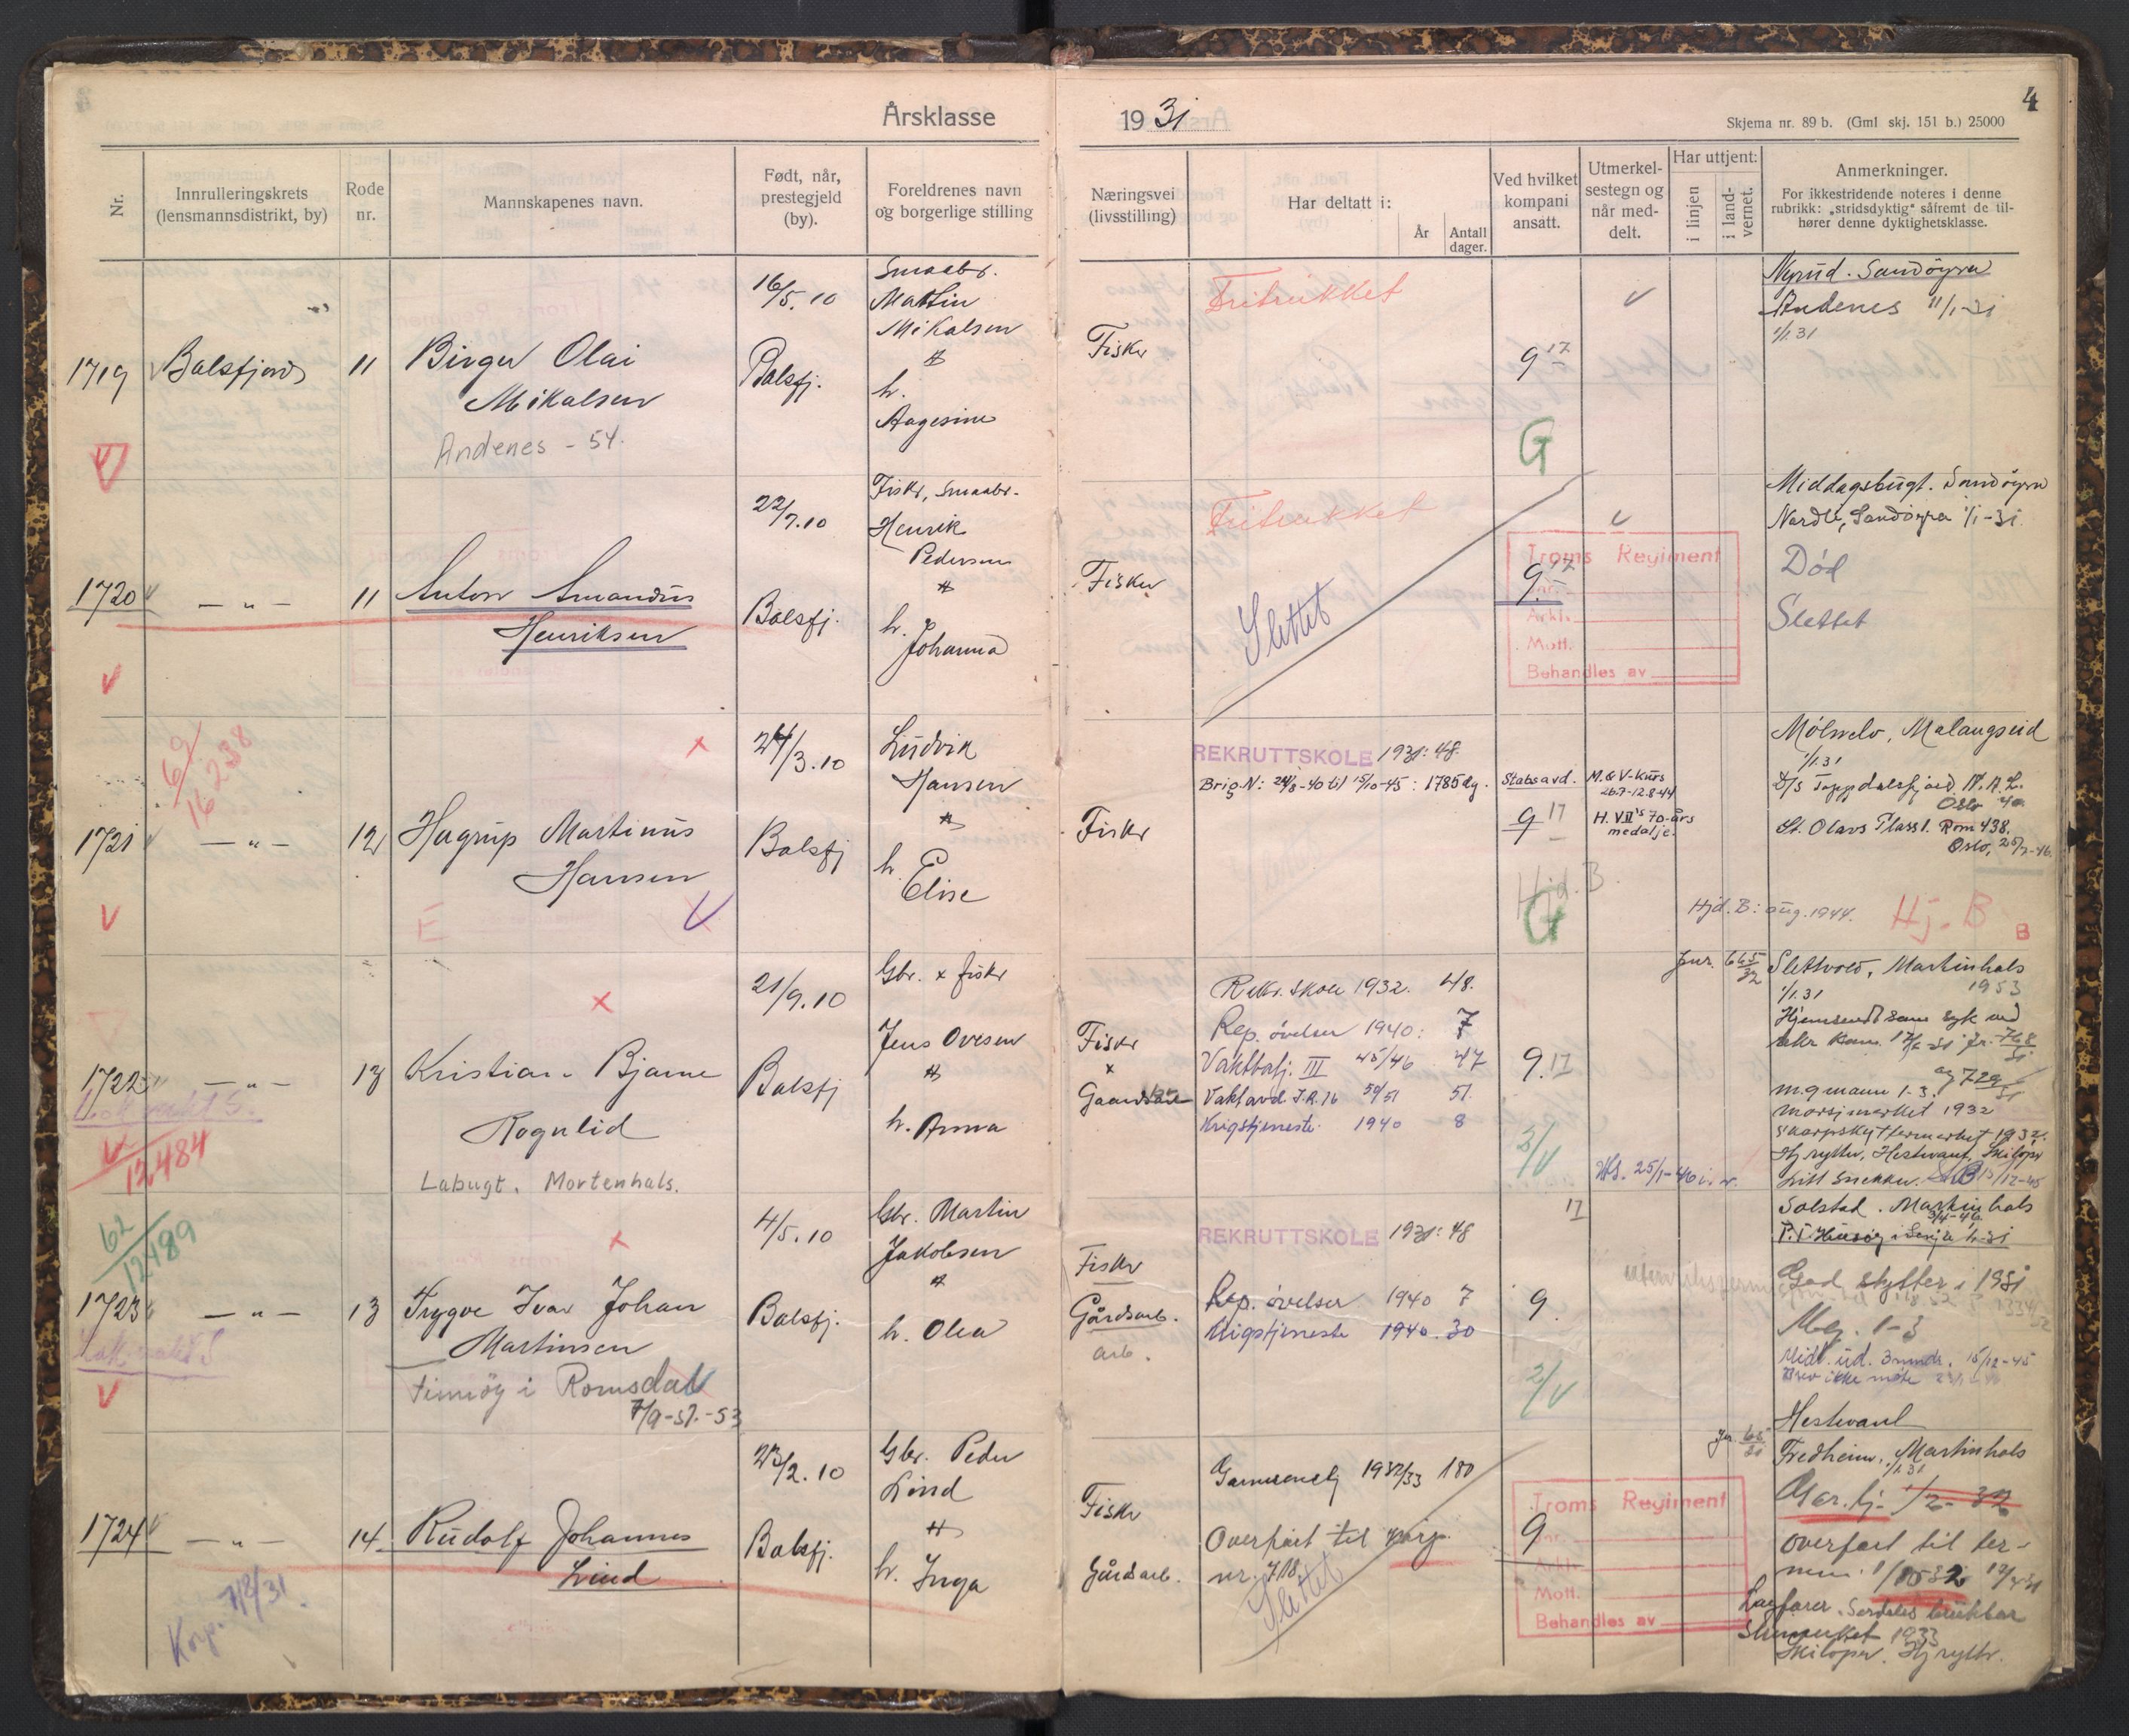 Årsklasse
1931
4
Skjema nr. 89 b. (Gml skj. 151 b.) 25000
Nr.
Innrulleringskrets
(lensmannsdistrikt, by)
Rode
nr.
Mannskapenes navn.
Født, når,
prestegjeld
(by).
Foreldrenes navn
og borgerlige stilling
Næringsvei
(livsstilling)
Har deltatt i:
År
Antall
dager.
Ved hvilket
kompani
ansatt.
Utmerkel-
sestegn og
når med-
delt.
Har uttjent:
i linjen
i land-
vernet.
Anmerkninger.
For ikkestridende noteres i denne
rubrikk: „stridsdyktig“ såfremt de til-
hører denne dyktighetsklasse.
1719
Balsfjord
11
Birger Olai
Mikalsen
Andenes - 54.
16/5.10
Balsfj.
Smaabr.
Martin
Mikalsen
h.
Aagesine
Fisker
Fritrukket
9 17
G
Nyrud. Sandöyra
Andenes 11/1-31
1/1.31
1720
— „ —
11
Anton Amandus
Henriksen
22/7.10
Balsfj.
Fisker, Smaabr.
Henrik
Pedersen
h.
Johanna
Fisker
Fritrukket
Slettet
9. 17
Troms Regiment
Jnr.
Arkh.
Mott.
Behandles av
Middagsbugt. Sandöyra
Nordli, Sandöyra 1/1-31.
Död
Slettet
69/16238
1721
— „ —
12
Hagrup Martinus
Hansen
E
24/3.10
Balsfj
Ludvik
Hansen
h.
Elise
Fisker
REKRUTTSKOLE 1931: 48.
Brig. N: 24/8-40 til 15/10-45: 1785 dg.
Stabsavd.
9 17
Hjd. B.
G
M. & V-kurs
26.7-12.8-44
H. VII's 70-års
medalje.
Hjd. B: aug. 1944.
Mölnelv, Malangseid
1/1.31
D/S Toppdalsfjord N. A. L.
Oslo 40
St. Olavs Plass 1. Rom 438.
Oslo, 25/2-46.
Hj. B
B
1722
— „ —
Lok. vakt S.
12484
13
Kristian Bjarne
Rognlid
Labugt. Mortenhals.
21/9.10
Balsfj
Gbr. x fisker
Jens Ovesen
h. Anna
Fisker
x
Gaardsarb
Rekr. skole 1932. 48.
Rep. övelser 1940: 7
Vaktbatj. III 45/46 47
Vaktavd. I.R. 16 50/51 51.
Krigstjeneste 1940 8
9. 17
3/V
Jnr. 665/32
Slettvold, Martinhals
1/1.31 1953
Hjemsendt som syk ved
rekr kom. 17/6 31 jr. 768/31
og 729/31
m.g mann 1-3.
marsjmerket 1932
skarpskyttermerket 1932.
Hj rytter, Hestvant, Skilöper
Litt snekker. 15/12-45
62/12489
1723
— „ —
Lok. vakt S
13
Trygve Ivar Johan
Martinsen
Finnöy i Romsdal
7/9-51.-53
4/5.10
Balsfj.
Gbr. Martin
Jakobsen
h. Olea
Fisker
Gårdsarb.
arb.
REKRUTTSKOLE 1931: 48
Rep. övelser 1940 7
Krigstjeneste 1940. 30
17
9
2/V
Solstad. Martinhals
3/4-46.
P.T. Husöy i Senja 1/1-31
God skytter i 1931
Mg. 1-3
Midl. ud. 3 mndr. 15/12-45
Brev ikke møte
Hestvant
1724
— „ —
Korp. 718/31.
14
Rudolf Johannes
Lind
23/2.10
Balsfj.
Gbr. Peder
Lind
h. Inga
Fisker
Gårdsarb.
Garnisonstj 1932/33 180
Overfört til korp.
nr. 718.
Slettet
9
Troms Regiment
Jnr.
Arkh.
Mott.
Behandles av
Fredheim, Martinhals
1/1.31
Gar. tj. 1/2-32
overfört til ter-
min
Lagförer. Særdeles brukbar
Skimerket 1933
Skilöper. Hj rytter.